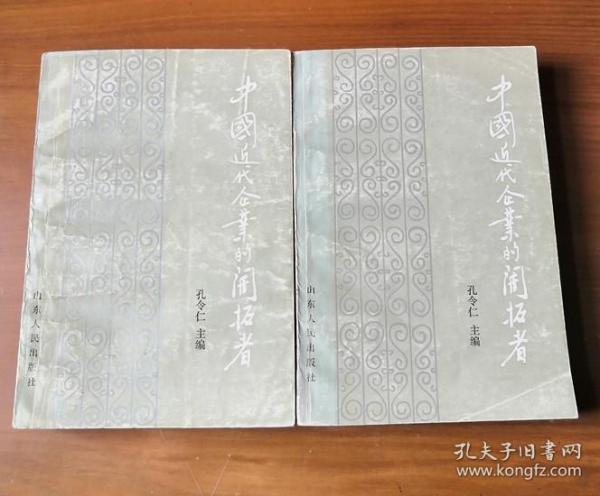 中國近代企業的開拓者
孔令仁 主编
山东人民出版社
中國近代企業的開拓者
孔令仁 主编
山东人民出版社
孔夫子旧书网
www.kongfz.com